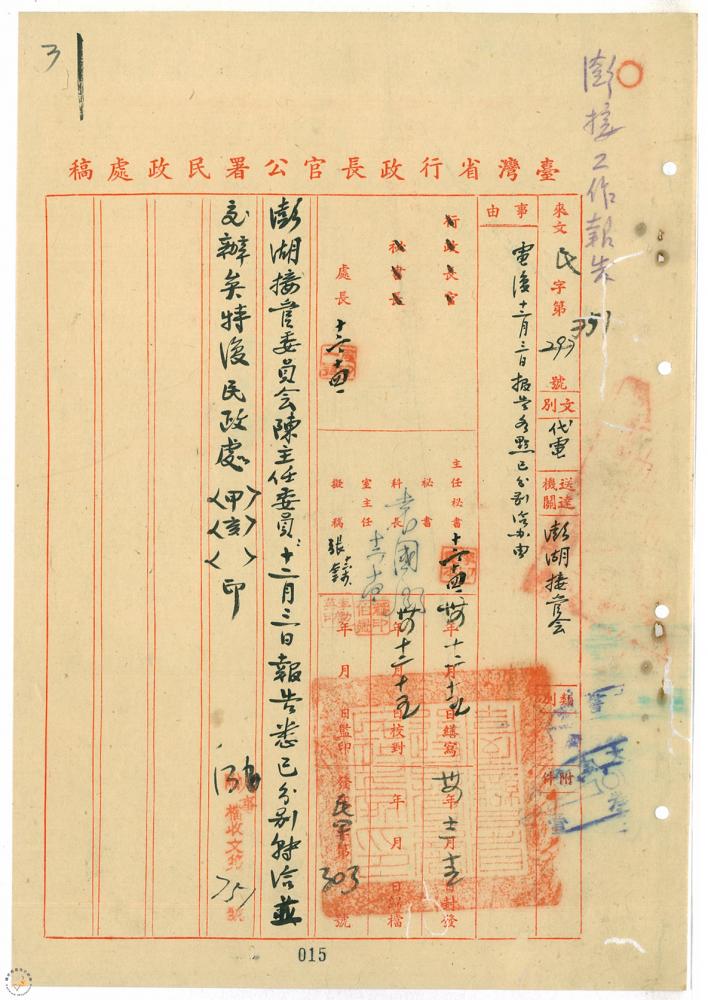 3
澎接工作報告
臺灣省行政長官公署民政處稿
來文 民 字第 293 號
751
文別 代電
送達機關 澎湖接管會
類別
附件
事由
電復十二月三日報告各點已分別洽办由
行政長官
秘書長
處長
十二、十四
主任秘書
十二、十四
秘書
科長
室主任
擬稿
張
卅四年十二月十五日繕寫
卅四年十二月十五日校對
年 月 日監印
卅四年十二月 日封發
年 月 日歸檔
發 民字第 303 號
澎湖接管委員会陳主任委員:十二月三日報告悉已分別轉洽並
交辦矣特復民政處〈甲〉
〈亥〉
〈 〉印
檔收文給 751 號
015